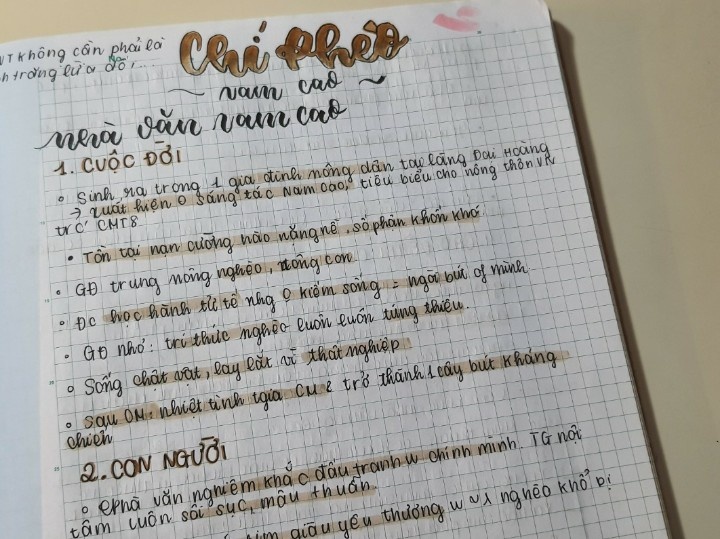 VT không cần phải là
h trăng lừa dối...
Chí Phèo
~ Nam Cao ~
Nhà văn Nam Cao
1. CUỘC ĐỜI
Sinh ra trong 1 gia đình nông dân tại làng Đại Hoàng
→ xuất hiện ở sáng tác Nam Cao, tiêu biểu cho nông thôn VN
trc CMT8
Tồn tại nạn cường hào nặng nề, số phận khốn khó
GĐ trung nông nghèo, đông con
Đc học hành tử tế nhg o kiếm sống = ngòi bút of mình
GĐ nhỏ: trí thức nghèo luôn luôn túng thiếu
Sống chật vật, lay lắt vì thất nghiệp
Sau CM: nhiệt tình tgia CM & trở thành 1 cây bút kháng
chiến
2. CON NGƯỜI
nhà văn nghiêm khắc đấu tranh w chính mình. TG nội
tâm luôn sôi sục, mâu thuẫn.
tim giàu yêu thương w nghèo khổ bị